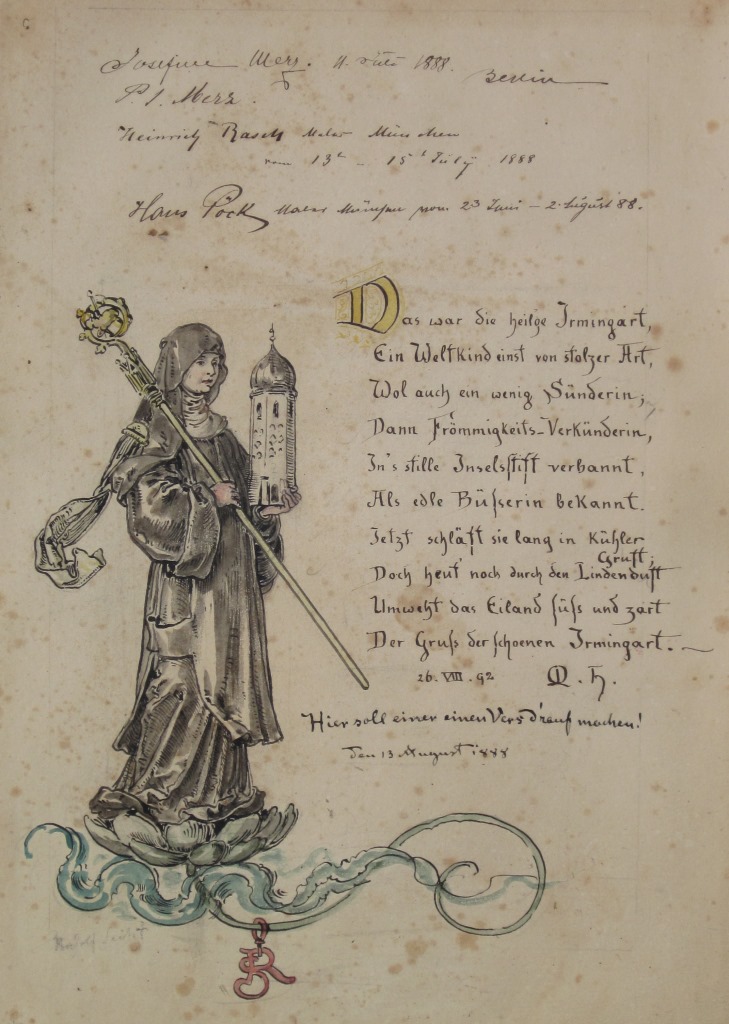 Josefine Merz. 11. Juli 1888. Berlin
P. J. Merz.
Heinrich Rasch Maler München
vom 13t - 15t July 1888
Hans Pöck Maler München vom 23 Juni - 2. August 88.
Das war die heilge Irmingart,
Ein Weltkind einst von stolzer Art,
Wol auch ein wenig Sünderin;
Dann Frömmigkeits-Verkünderin,
In's stille Inselstift verbannt,
Als edle Büßerin bekannt.
Jetzt schläft sie lang in kühler Gruft;
Doch heut' noch durch den Lindenduft
Umweht das Eiland süß und zart
Der Gruß der schoenen Irmingart.
26. VIII. 92 M. H.
Hier soll einer einen Vers d'rauf machen!
Den 13 August 1888
Rudolf Seitz
RS